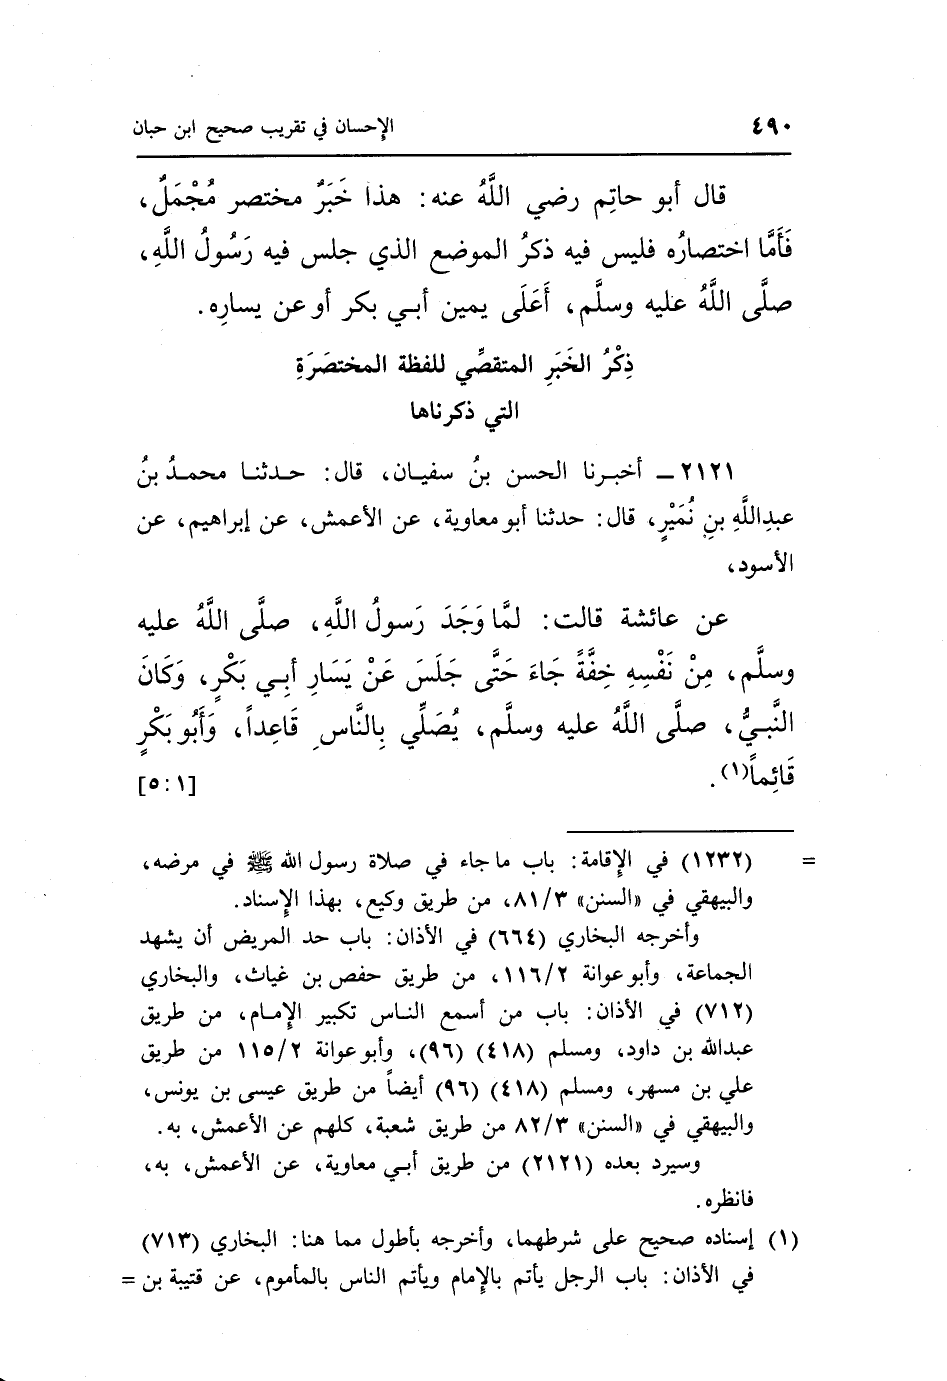 ٤٩٠ الإحسان في تقريب صحيح ابن حبان
قال أبو حاتِم رضي اللَّهُ عنه: هذا خَبَرٌ مختصر مُجْمَلٌ،
فَأَمَّا اختصارُه فليس فيه ذكرُ الموضع الذي جلس فيه رَسُولُ اللَّهِ،
صلَّى اللَّهُ عليه وسلَّم، أَعَلَى يمين أبي بكر أو عن يسارِه.
ذِكْرُ الخَبَرِ المتقصِّي للفظة المختصَرَةِ
التي ذكرناها
٢١٢١ ــ أخبرنا الحسن بنُ سفيان، قال: حدثنا محمدُ بنُ
عبدِاللَّهِ بنِ نُمَيْرٍ، قال: حدثنا أبو معاوية، عن الأعمش، عن إبراهيم، عن
الأسود،
عن عائشة قالت: لمَّا وَجَدَ رَسولُ اللَّهِ، صلَّى اللَّهُ عليه
وسلَّم، مِنْ نَفْسِهِ خِفَّةً جَاءَ حَتَّى جَلَسَ عَنْ يَسَارِ أبي بَكْرٍ، وَكَانَ
النَّبيُّ، صلَّى اللَّهُ عليه وسلَّم، يُصَلِّي بِالنَّاسِ قَاعِداً، وَأَبُو بَكْرٍ
قَائِماً(١). [٥:١]
= (١٢٣٢) في الإقامة: باب ما جاء في صلاة رسول الله ﷺ في مرضه،
والبيهقي في «السنن» ٨١/٣، من طريق وكيع، بهذا الإسناد.
وأخرجه البخاري (٦٦٤) في الأذان: باب حد المريض أن يشهد
الجماعة، وأبو عوانة ١١٦/٢، من طريق حفص بن غياث، والبخاري
(٧١٢) في الأذان: باب من أسمع الناس تكبير الإمام، من طريق
عبدالله بن داود، ومسلم (٤١٨) (٩٦)، وأبو عوانة ١١٥/٢ من طريق
علي بن مسهر، ومسلم (٤١٨) (٩٦) أيضاً من طريق عيسى بن يونس،
والبيهقي في «السنن» ٨٢/٣ من طريق شعبة، كلهم عن الأعمش، به.
وسيرد بعده (٢١٢١) من طريق أبي معاوية، عن الأعمش، به،
فانظره.
(١) إسناده صحيح على شرطهما، وأخرجه بأطول مما هنا: البخاري (٧١٣)
في الأذان: باب الرجل يأتم بالإمام ويأتم الناس بالمأموم، عن قتيبة بن =